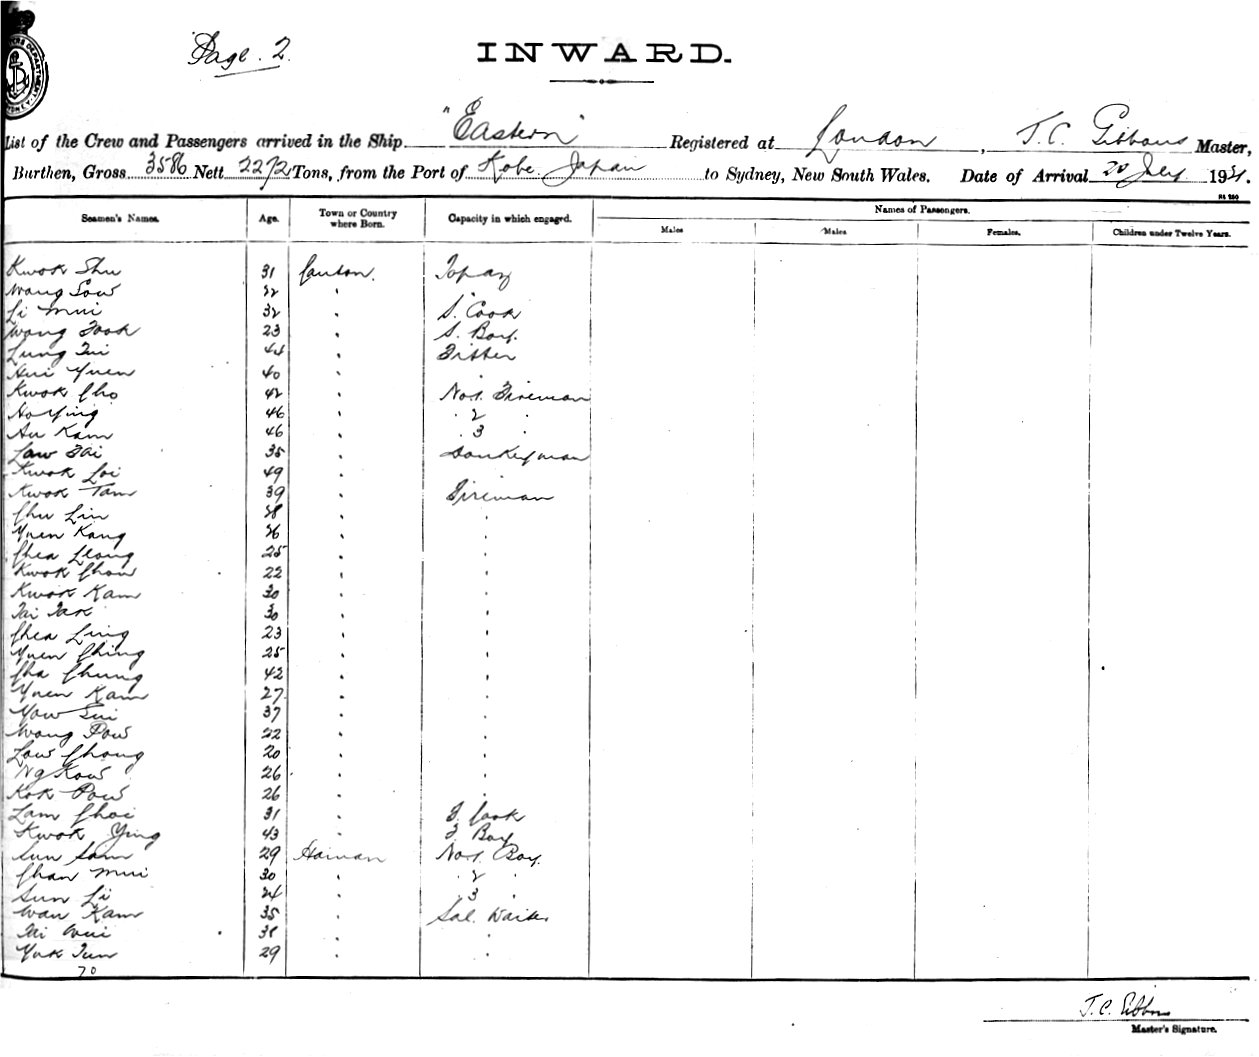 Page. 2.
INWARD.
List of the Crew and Passengers arrived in the Ship "Eastern" Registered at London, J. C. Gibbons Master,
Burthen, Gross 3586 Nett 2272 Tons, from the Port of Kobe. Japan to Sydney, New South Wales. Date of Arrival 20 July 19
Seamen's Names. Age. Town or Country where Born. Capacity in which engaged. Names of Passengers.
Males Males Females. Children under Twelve Years.
Kwok Shu 31 Canton.
Wong Sow "
Li Mui 32 " S. Cook
Wong Fook 23 " S. Boy.
Lung 44 " Fitter
Hui Yuen 40 " "
Kwok Cho 42 " No 1. Fireman
Ho Ying 46 " " 2 "
Au Kam 46 " " 3 "
Law Tai 35 " Donkeyman
Kwok Loi 49 " "
Kwok Tam 39 " Fireman
Chu Lin " "
Yuen Kang " "
Chea Leong 25 " "
Kwok Chow 22 " "
Kwok Kam 30 " "
Tai Tak 30 " "
Chea Ling 23 " "
Yuen Ching 25 " "
Cha Chung 42 " "
Yuen Kam 27 " "
Yow Sui 37 " "
Wong Pow 22 " "
Low Chong 20 " "
Ng Kow 26 " "
Kok Pow 26 " "
Lam Choi 31 " F. Cook
Kwok Ying 43 " F Boy
Sun Sam 29 Hainan No 1. Boy.
Chan Mui 30 " " 2 "
Sun Li 24 " " 3 "
Wan Kam 35 " Sal. Waiter
Tai " "
Yuk Tun 29 " "
70
J. C. Gibbons
Master's Signature.